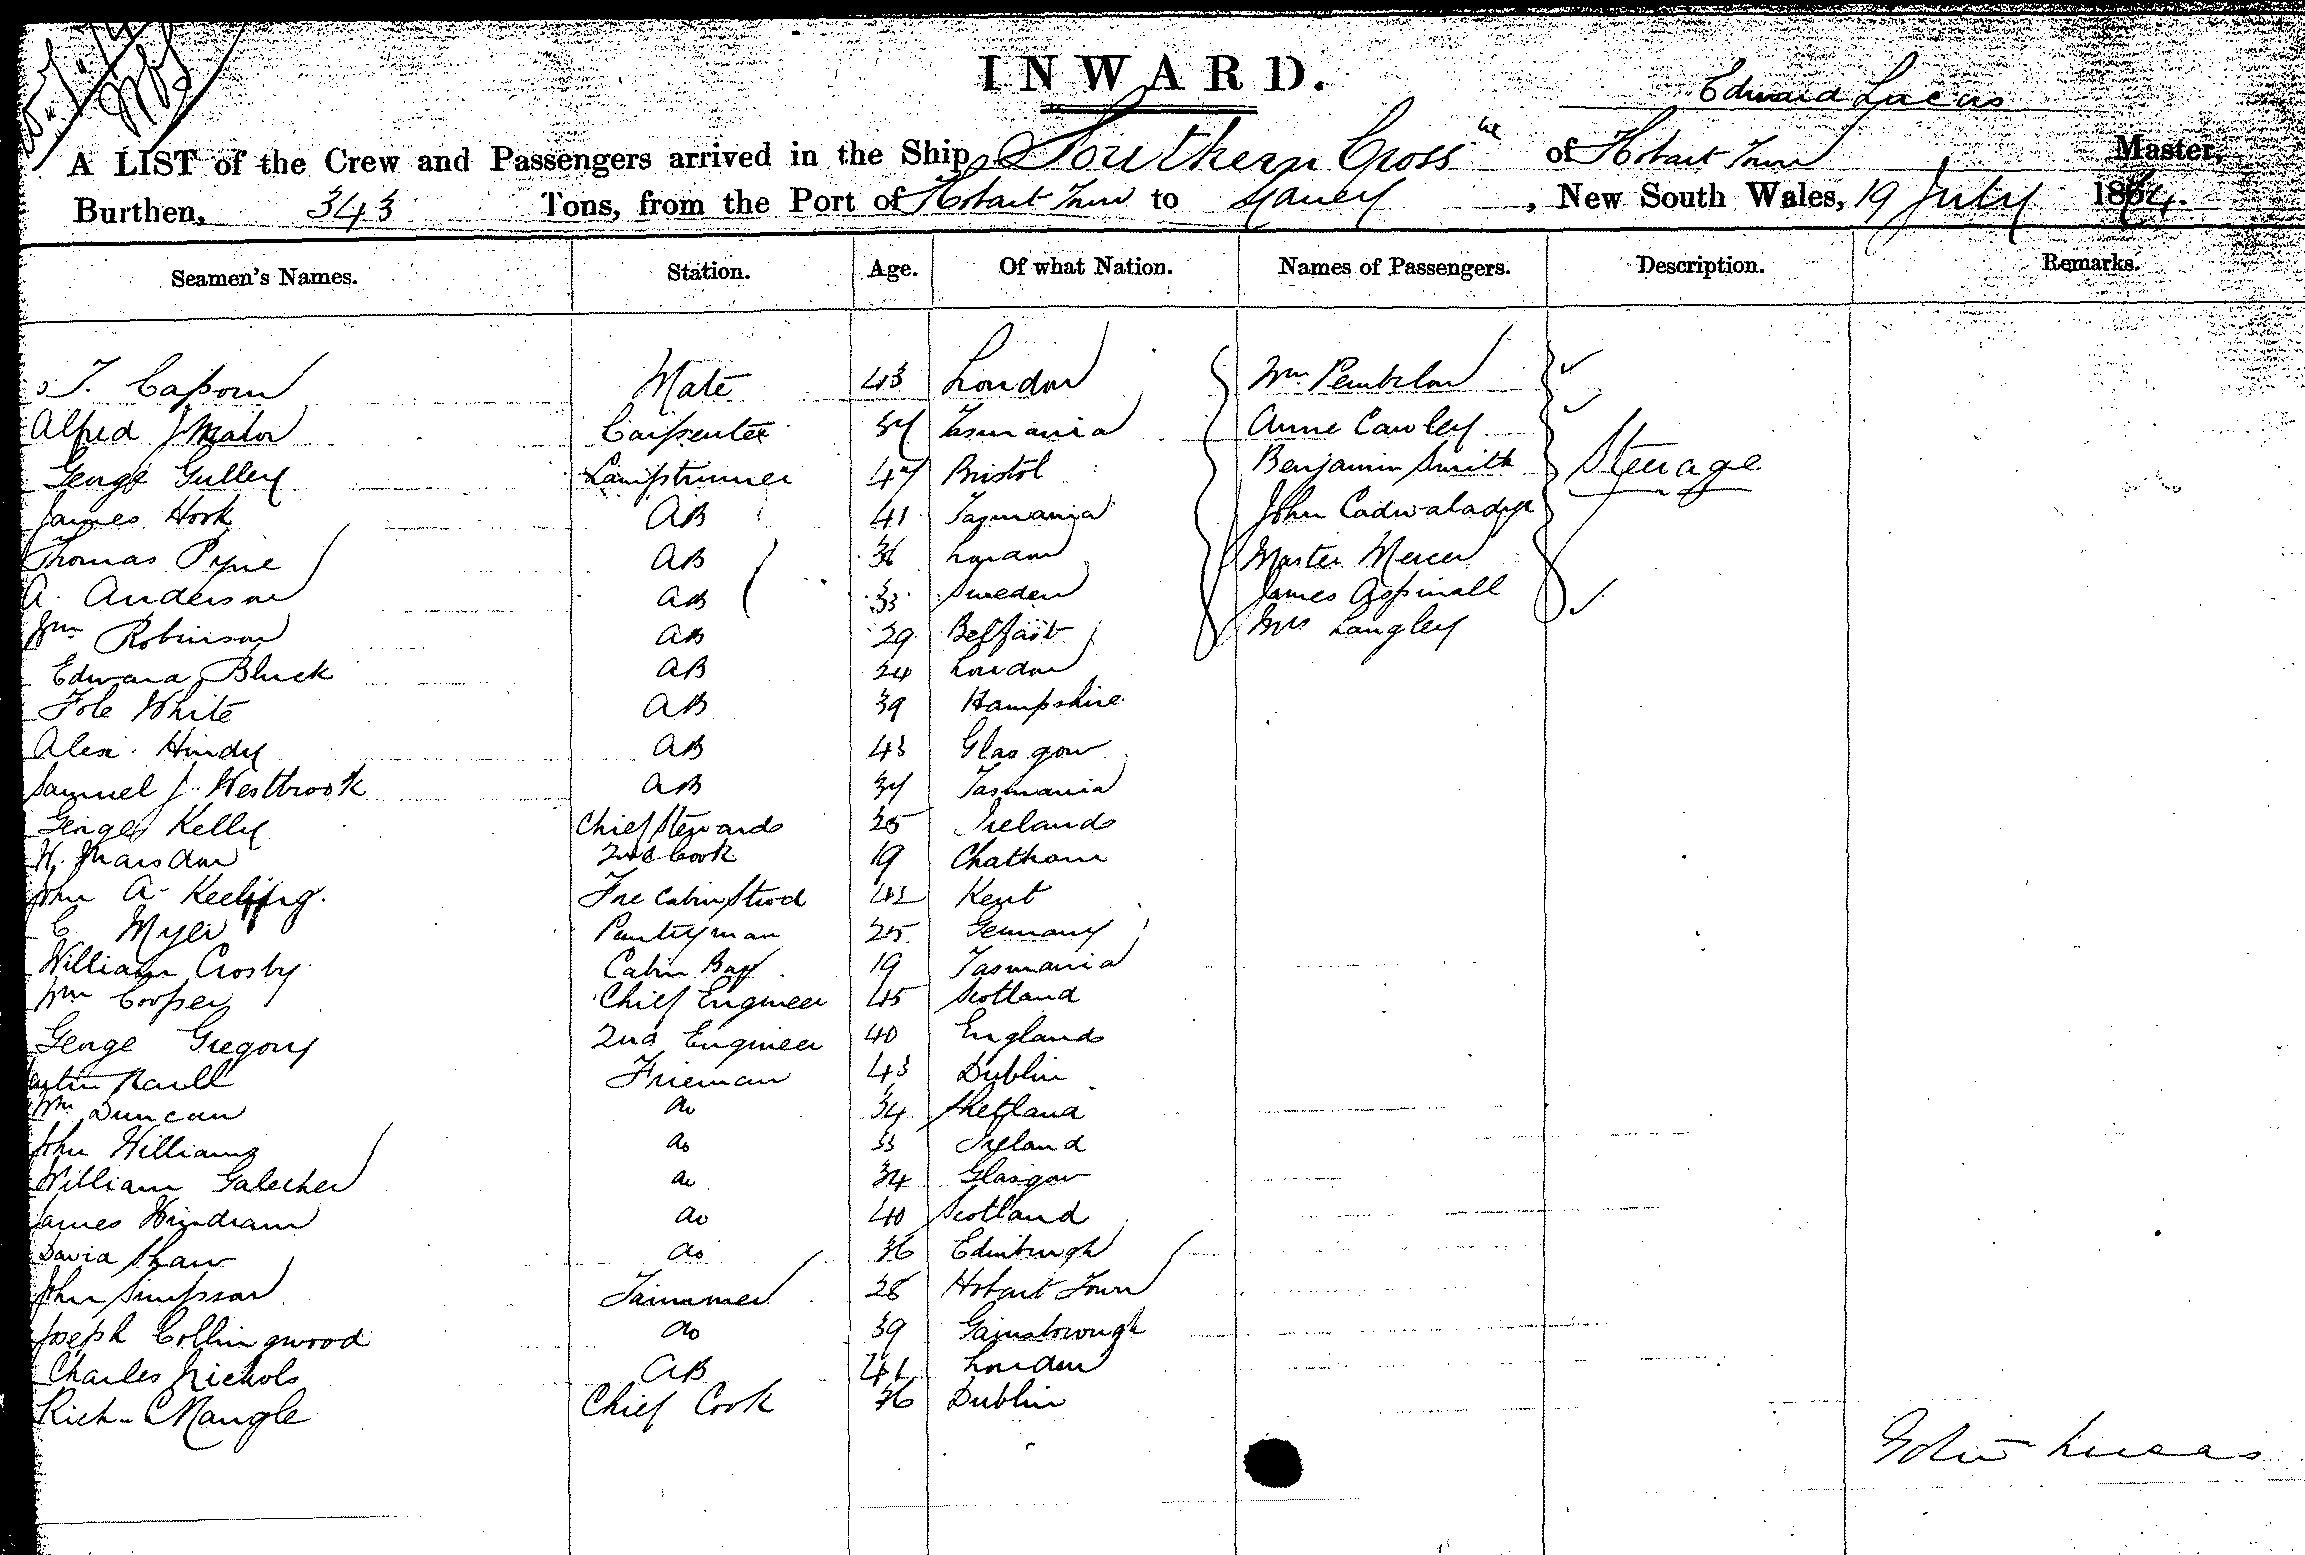 INWARD.
Edward Lucas
A LIST of the Crew and Passengers arrived in the Ship Southern Cross of Hobart Town Master,
Burthen, 343 Tons, from the Port of Hobart Town to Sydney, New South Wales, 19 July 1864.
Seamen's Names. Station. Age. Of what Nation. Names of Passengers. Description. Remarks.
T. Capon Mate 43 London Wm Pembleton
Alfred J Carpenter 37 Tasmania Anne Cawley
George Gulley Lamptrimmer 47 Bristol Benjamin Smith Steerage
James Hook AB 41 Tasmania John Cadwalader
Thomas Pyne AB 36 London Master Mercer
A. Anderson AB 33 Sweden James Aspinall
Wm Robinson AB 29 Belfast Mrs Langley
Edward Bluck AB 24 London
White AB 39 Hampshire
Alex. Hindy AB 43 Glasgow
Samuel J. Westbrook AB 37 Tasmania
George Kelly Chief Steward 25 Ireland
H. Marsdon 2nd Cook 19 Chatham
John A. Keeling. Fre Cabin Stwd 42 Kent
C Myer Pantryman 25 Germany
William Crosby Cabin Boy 19 Tasmania
Wm Cooper Chief Engineer 45 Scotland
George Gregory 2nd Engineer 40 England
Fireman 43 Dublin
Wm Duncan do 34 Shetland
John Williams do 33 Ireland
William Galecher do 34 Glasgow
James Windram do 40 Scotland
David Shaw do 36 Edinburgh
John Simpson Trimmer 28 Hobart Town
Joseph Collingwood do 39 Gainsborough
Charles Nichols AB 41 London
Rich. Mangle Chief Cook 36 Dublin
Edwd Lucas